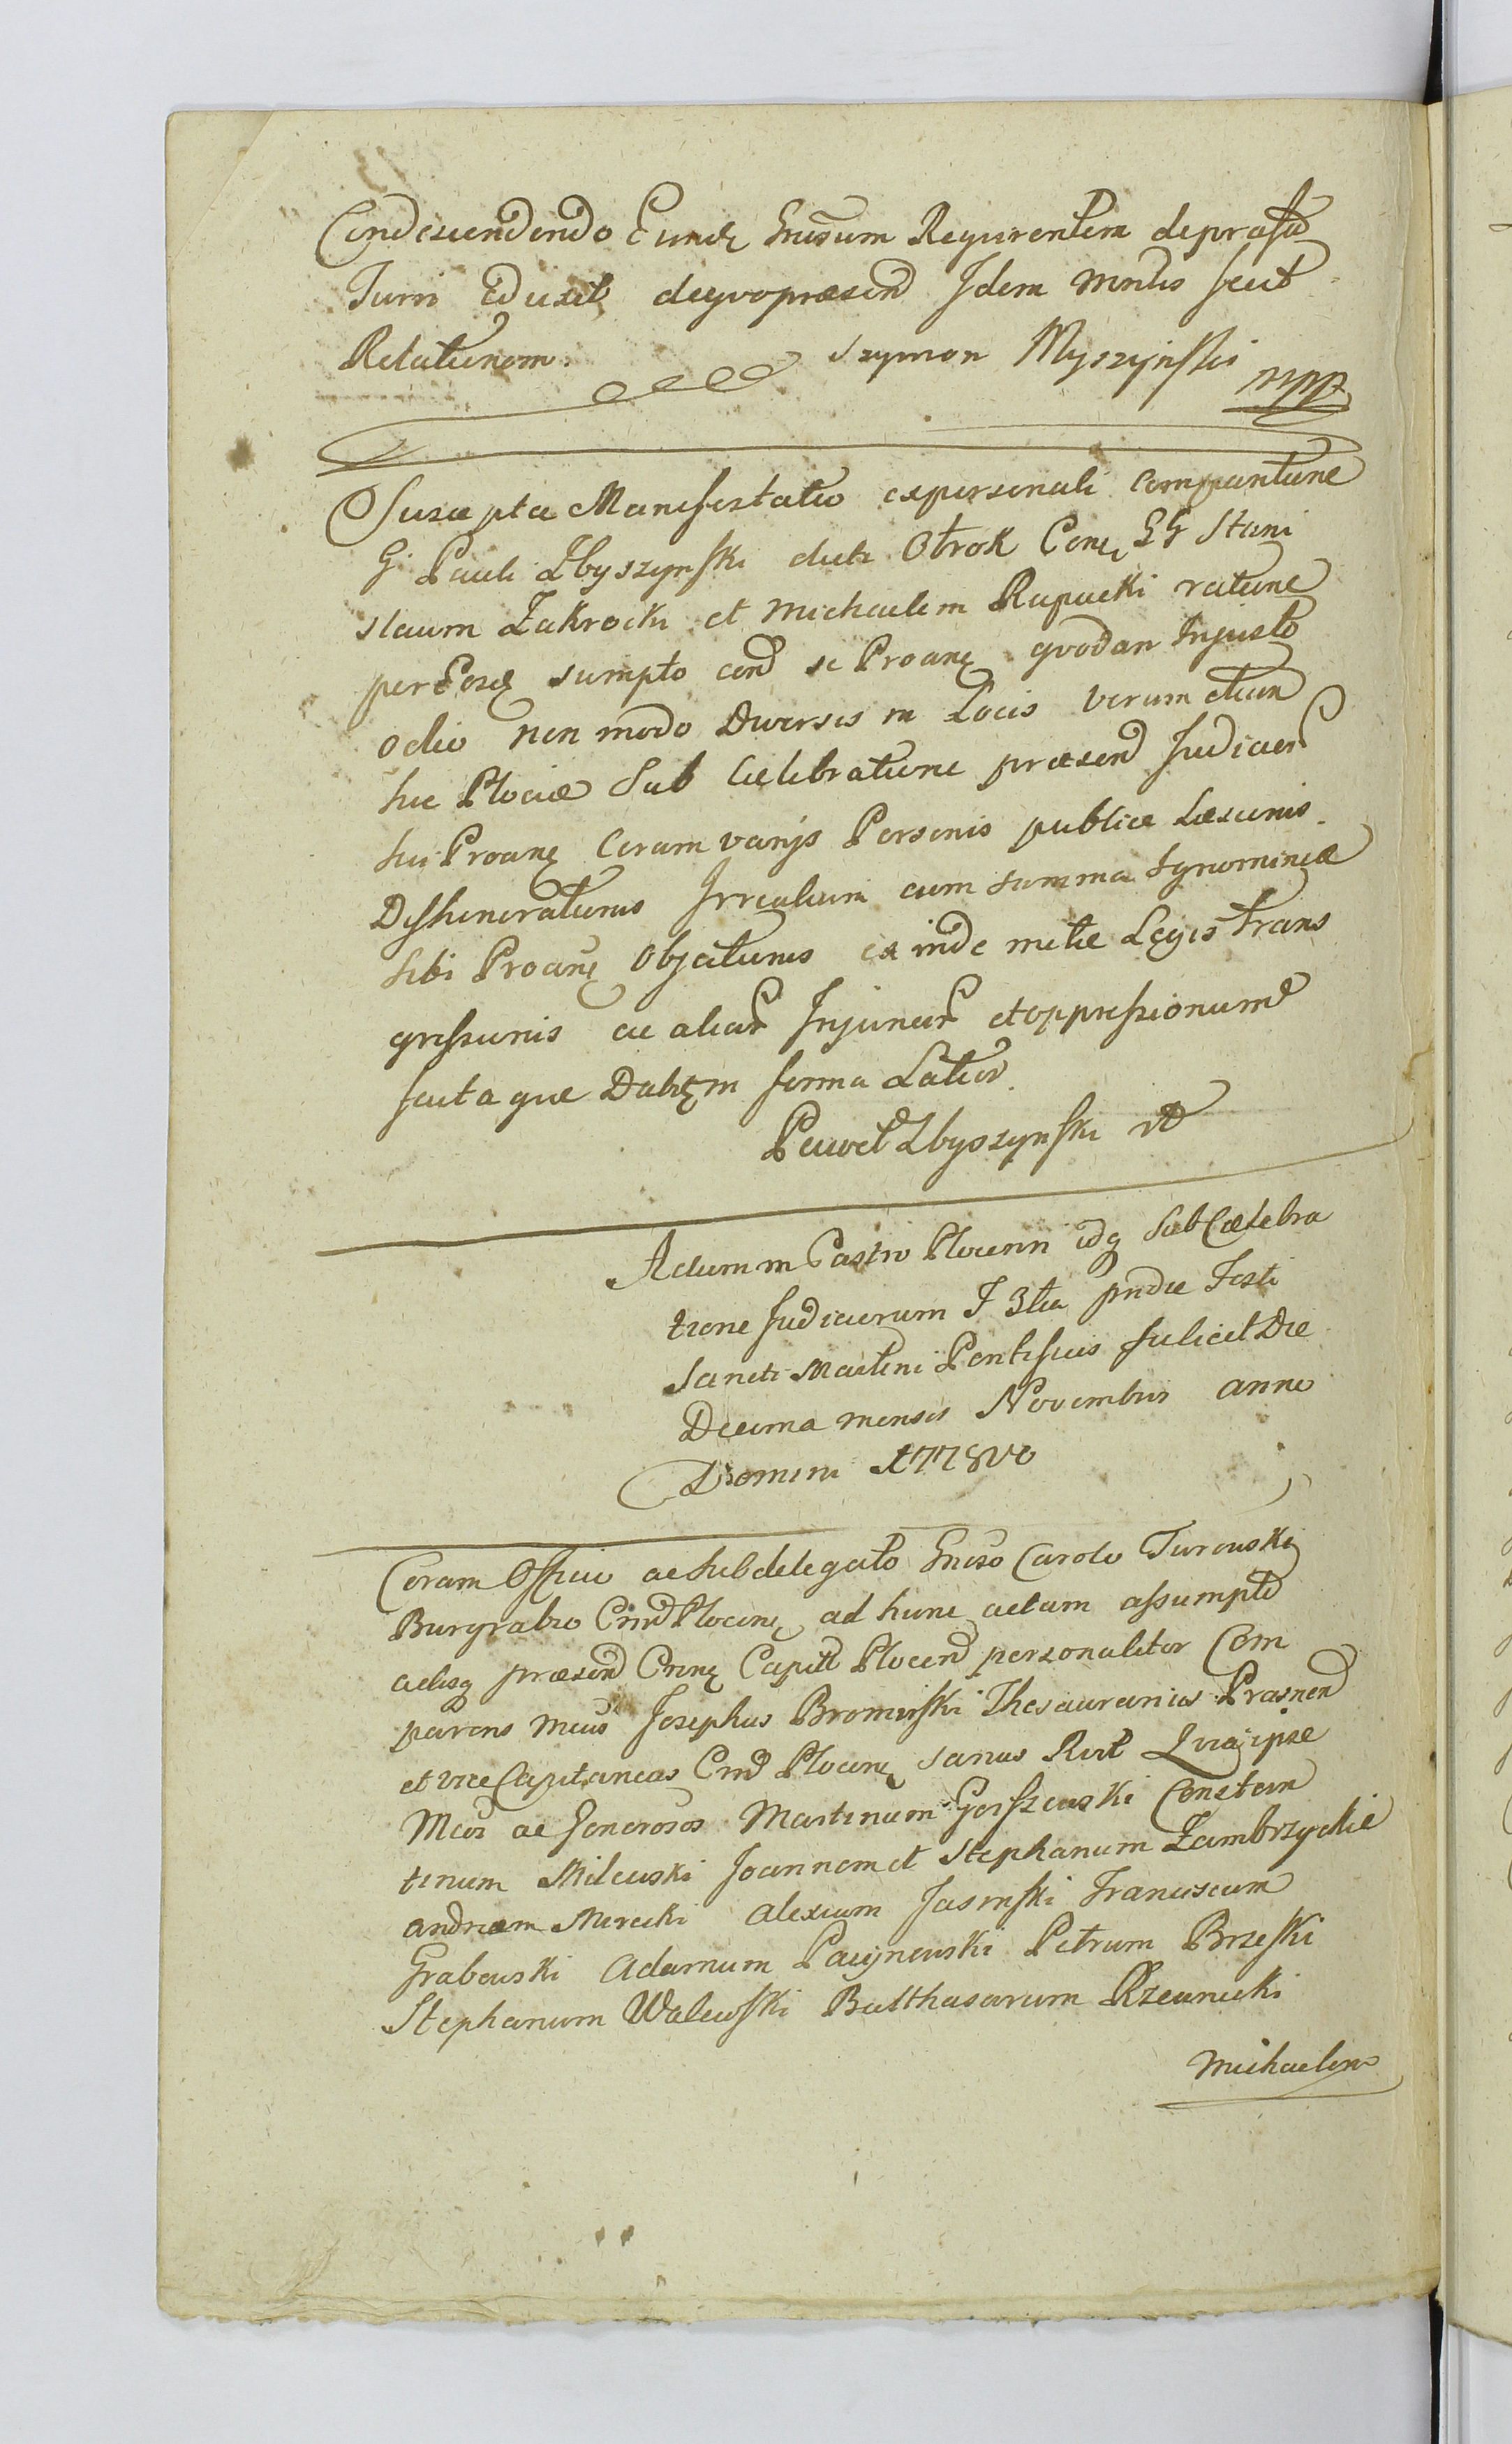 Condescendendo Eundē Gnrosum Requirentem de præfatā
Turri Eduxit, de quo præsend Idem Mnrlis fecit
Relationem. Szymon Myszyński
mpp
Suscepta Manifestatio ex personali Comparitione
G. Pauli Zbyszynski dicti Otrok Cone GG Stani
slaum Zakrocki et Michaelem Rapacki ratione
per Eosd sumpto cond se Proanē quodam Injusto
odio non modo Diversis in Locis verum etiam
hic Plociæ Sub Cælebratione præsend Judicior
sui Proanē Coram varijs Personis publice Læsionis
Dishonorationis Irrealium cum summa Ignominia
sibi Proanē Objectionis ex inde metæ Legis trans
gressionis ac aliar Injuriar et oppressionum
facta quæ Dabitē in forma Latior.
Paweł Zbyszynski
Actum in Castro Plocen idq Sub Cælebra
tione Judiciorum F 3tia pridie Festi
Sancti Martini Pontificis scilicet Die
Decima mensis Novembris anno
Domini 1778vo
Coram Officio ac Subdelegato Gnroso Carolo Turowski
Burgrabio Crnd Plocenē ad hunc actum assumpto
actisq præsend Crenē Capitl Plocend personaliter Com
parens Mcus Josephus Bromirski Thesaurarius Prasnend
et vice Capitaneus Crnd Plocenē sanus Rvit Quia ipse
Mcos ac Generosos Martinum Gosszewski Constan
tinum Milewski Joannem et Stephanum Zambrzyckie
Andream Mirecki Alexium Jasinski Franciscum
Grabowski Adamum Paczynowski Petrum Brzeski
Stephanum Walewski Balthasarum Rzeunicki
Michaelem